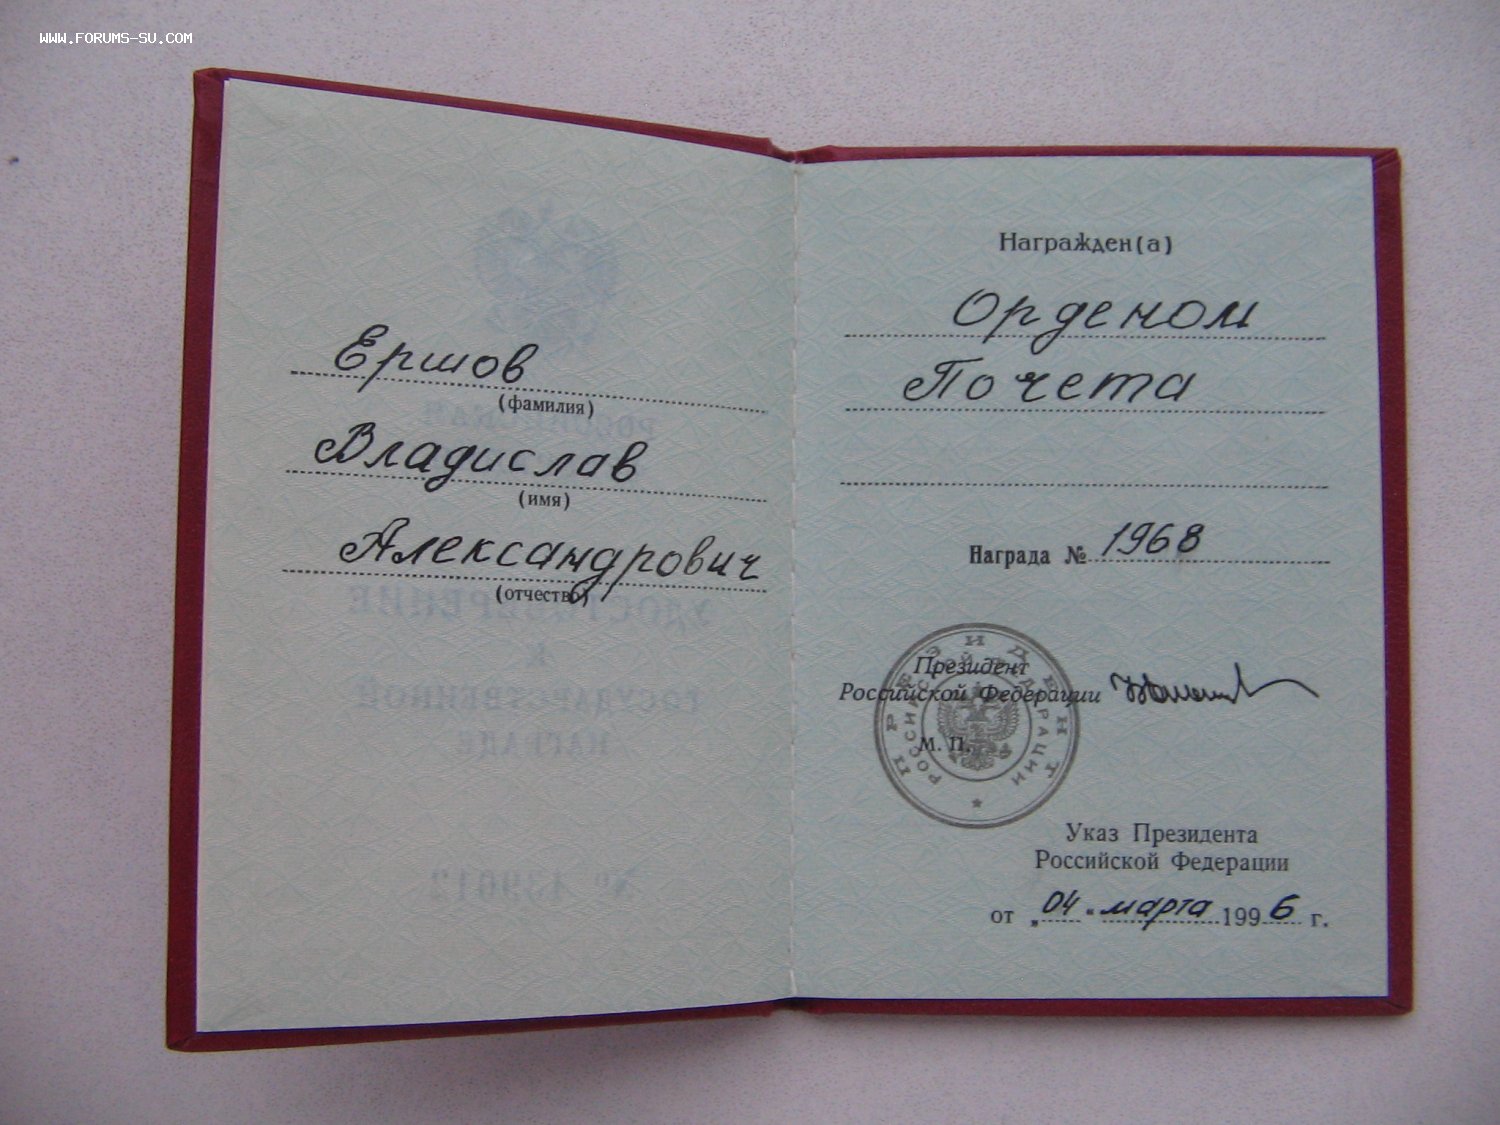 WWW.FORUMS-SU.COM
Ершов
(фамилия)
Владислав
(имя)
Александрович
(отчество)
Награжден(а)
Орденом
Почета
Награда № 1968
Президент
Российской Федерации
М. П.
ПРЕЗИДЕНТ
РОССИЙСКОЙ ФЕДЕРАЦИИ
Указ Президента
Российской Федерации
от „04" марта 1996 г.
РОССИЙСКАЯ
УДОСТОВЕРЕНИЕ
К
ГОСУДАРСТВЕННОЙ
НАГРАДЕ